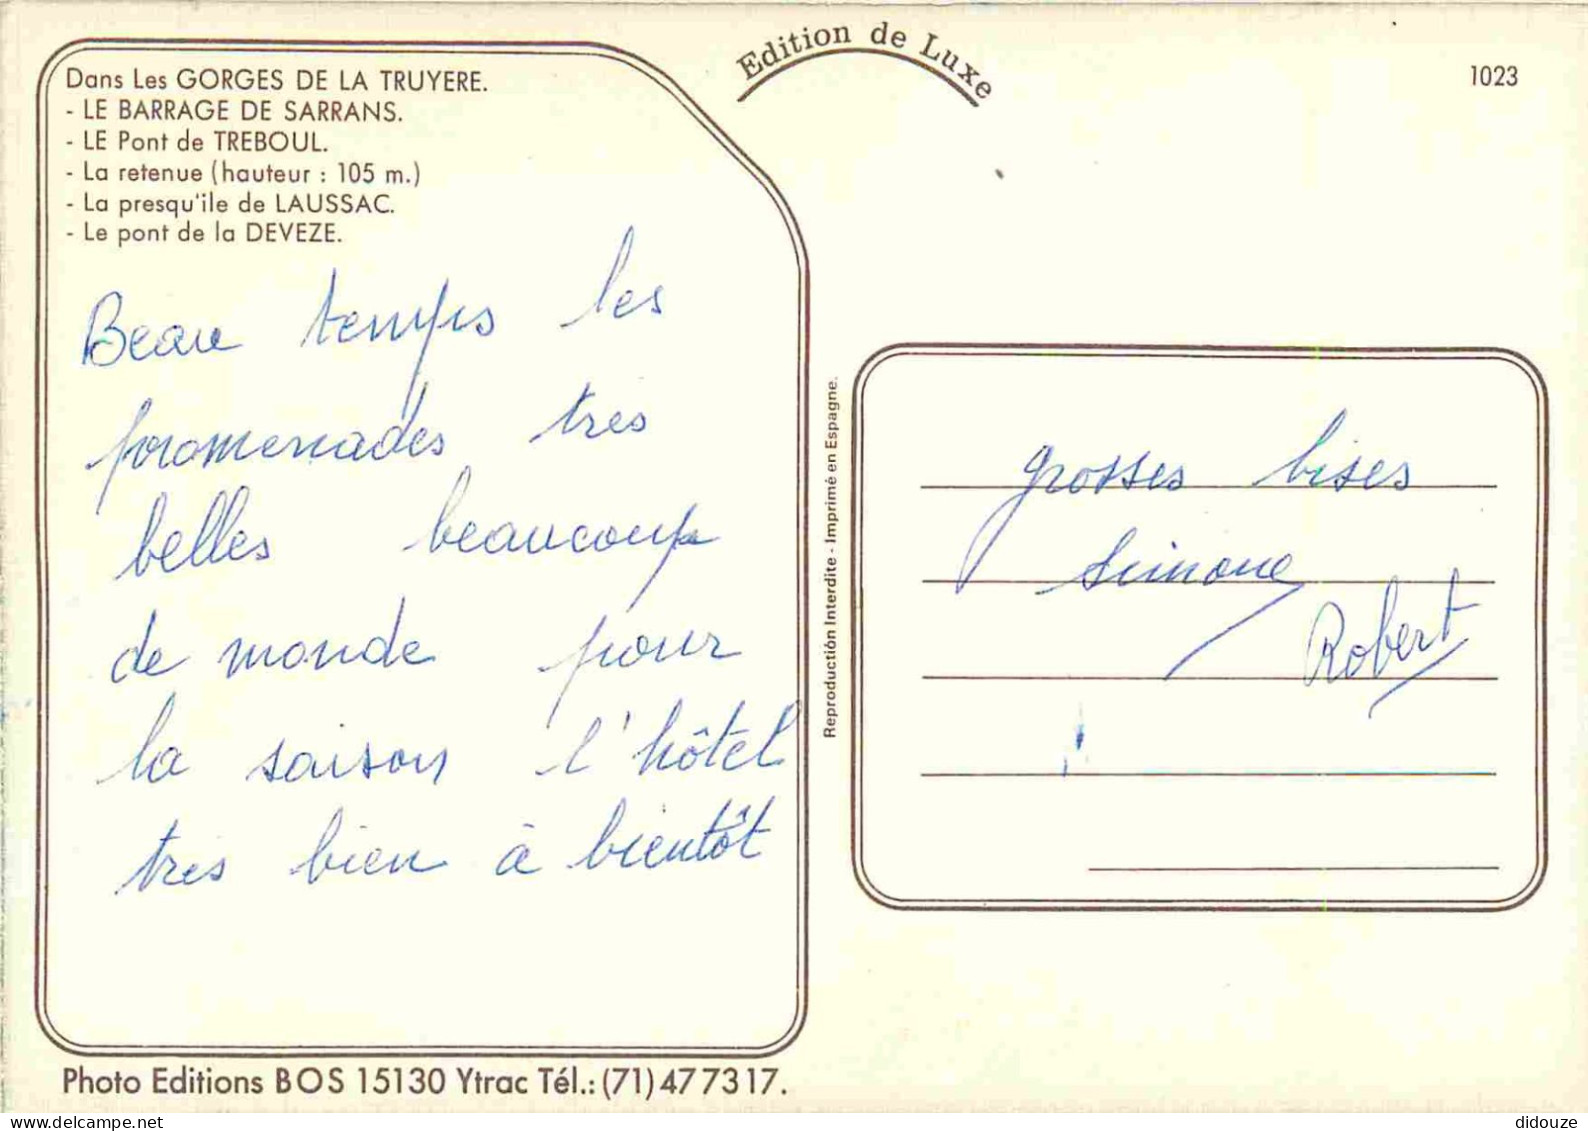 Edition de Luxe
1023
Dans Les GORGES DE LA TRUYERE.
- LE BARRAGE DE SARRANS.
- LE Pont de TREBOUL.
- La retenue (hauteur : 105 m.)
- La presqu'ile de LAUSSAC.
- Le pont de la DEVEZE.
Beau temps les
promenades très
belles beaucoup
de monde pour
la saison l'hôtel
très bien à bientôt
Reproduction Interdite - Imprimé en Espagne.
grosses bises
Simone
Robert
Photo Editions BOS 15130 Ytrac Tél.: (71) 47 73 17.
didouze